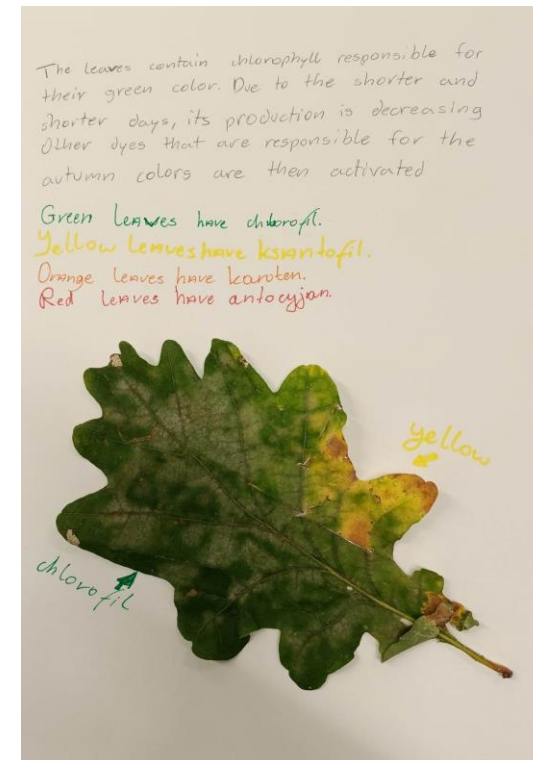 The leaves contain chlorophyll responsible for
their green color. Due to the shorter and
shorter days, its production is decreasing
Other dyes that are responsible for the
autumn colors are then activated
Green leaves have chlorofil.
Yellow leaves have ksantofil.
Orange leaves have karoten.
Red leaves have antocyjan.
yellow
chlorofil